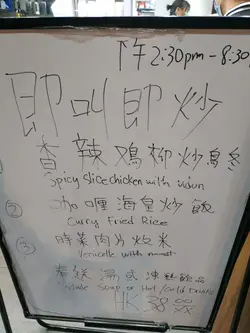 下午2:30pm-8:30
即叫即炒
香辣鷄柳炒烏冬
Spicy slice chicken with udon
② 咖喱海皇炒飯
Curry Fried Rice
③ 時菜肉片炒米
Vermicelle with meat
套送湯或凍熱飲品
Soup or Hot/Cold Drinks
HK 38